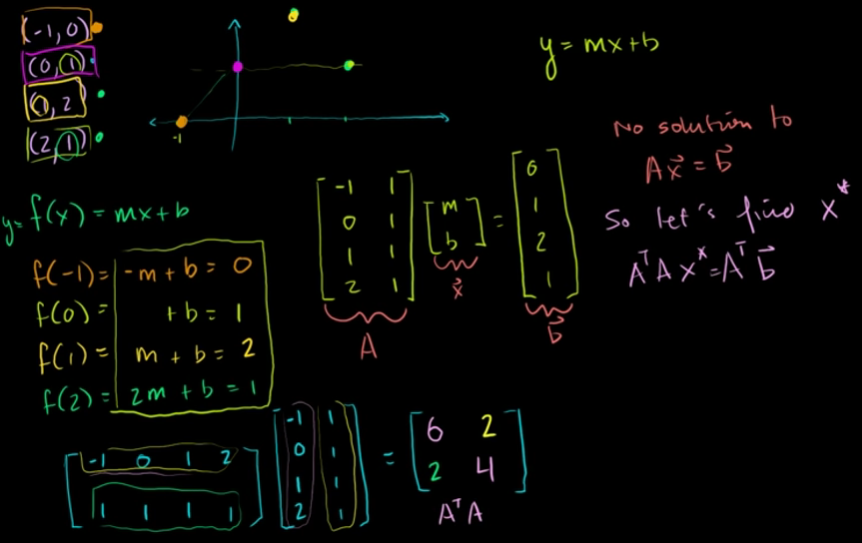 (-1, 0)
(0, 1)
(1, 2)
(2, 1)
-1
y = mx + b
No solution to
Ax⃗ = b⃗
So let's find x*
AᵀA x* = Aᵀ b⃗
y = f(x) = mx + b
f(-1) = -m + b = 0
f(0) = + b = 1
f(1) = m + b = 2
f(2) = 2m + b = 1
[-1 1] [m] = [0]
[0 1] [b] [1]
[1 1] [2]
[2 1] [1]
A x⃗ b⃗
[-1 0 1 2] [-1 1] = [6 2]
[1 1 1 1] [0 1] [2 4]
[1 1]
[2 1]
AᵀA